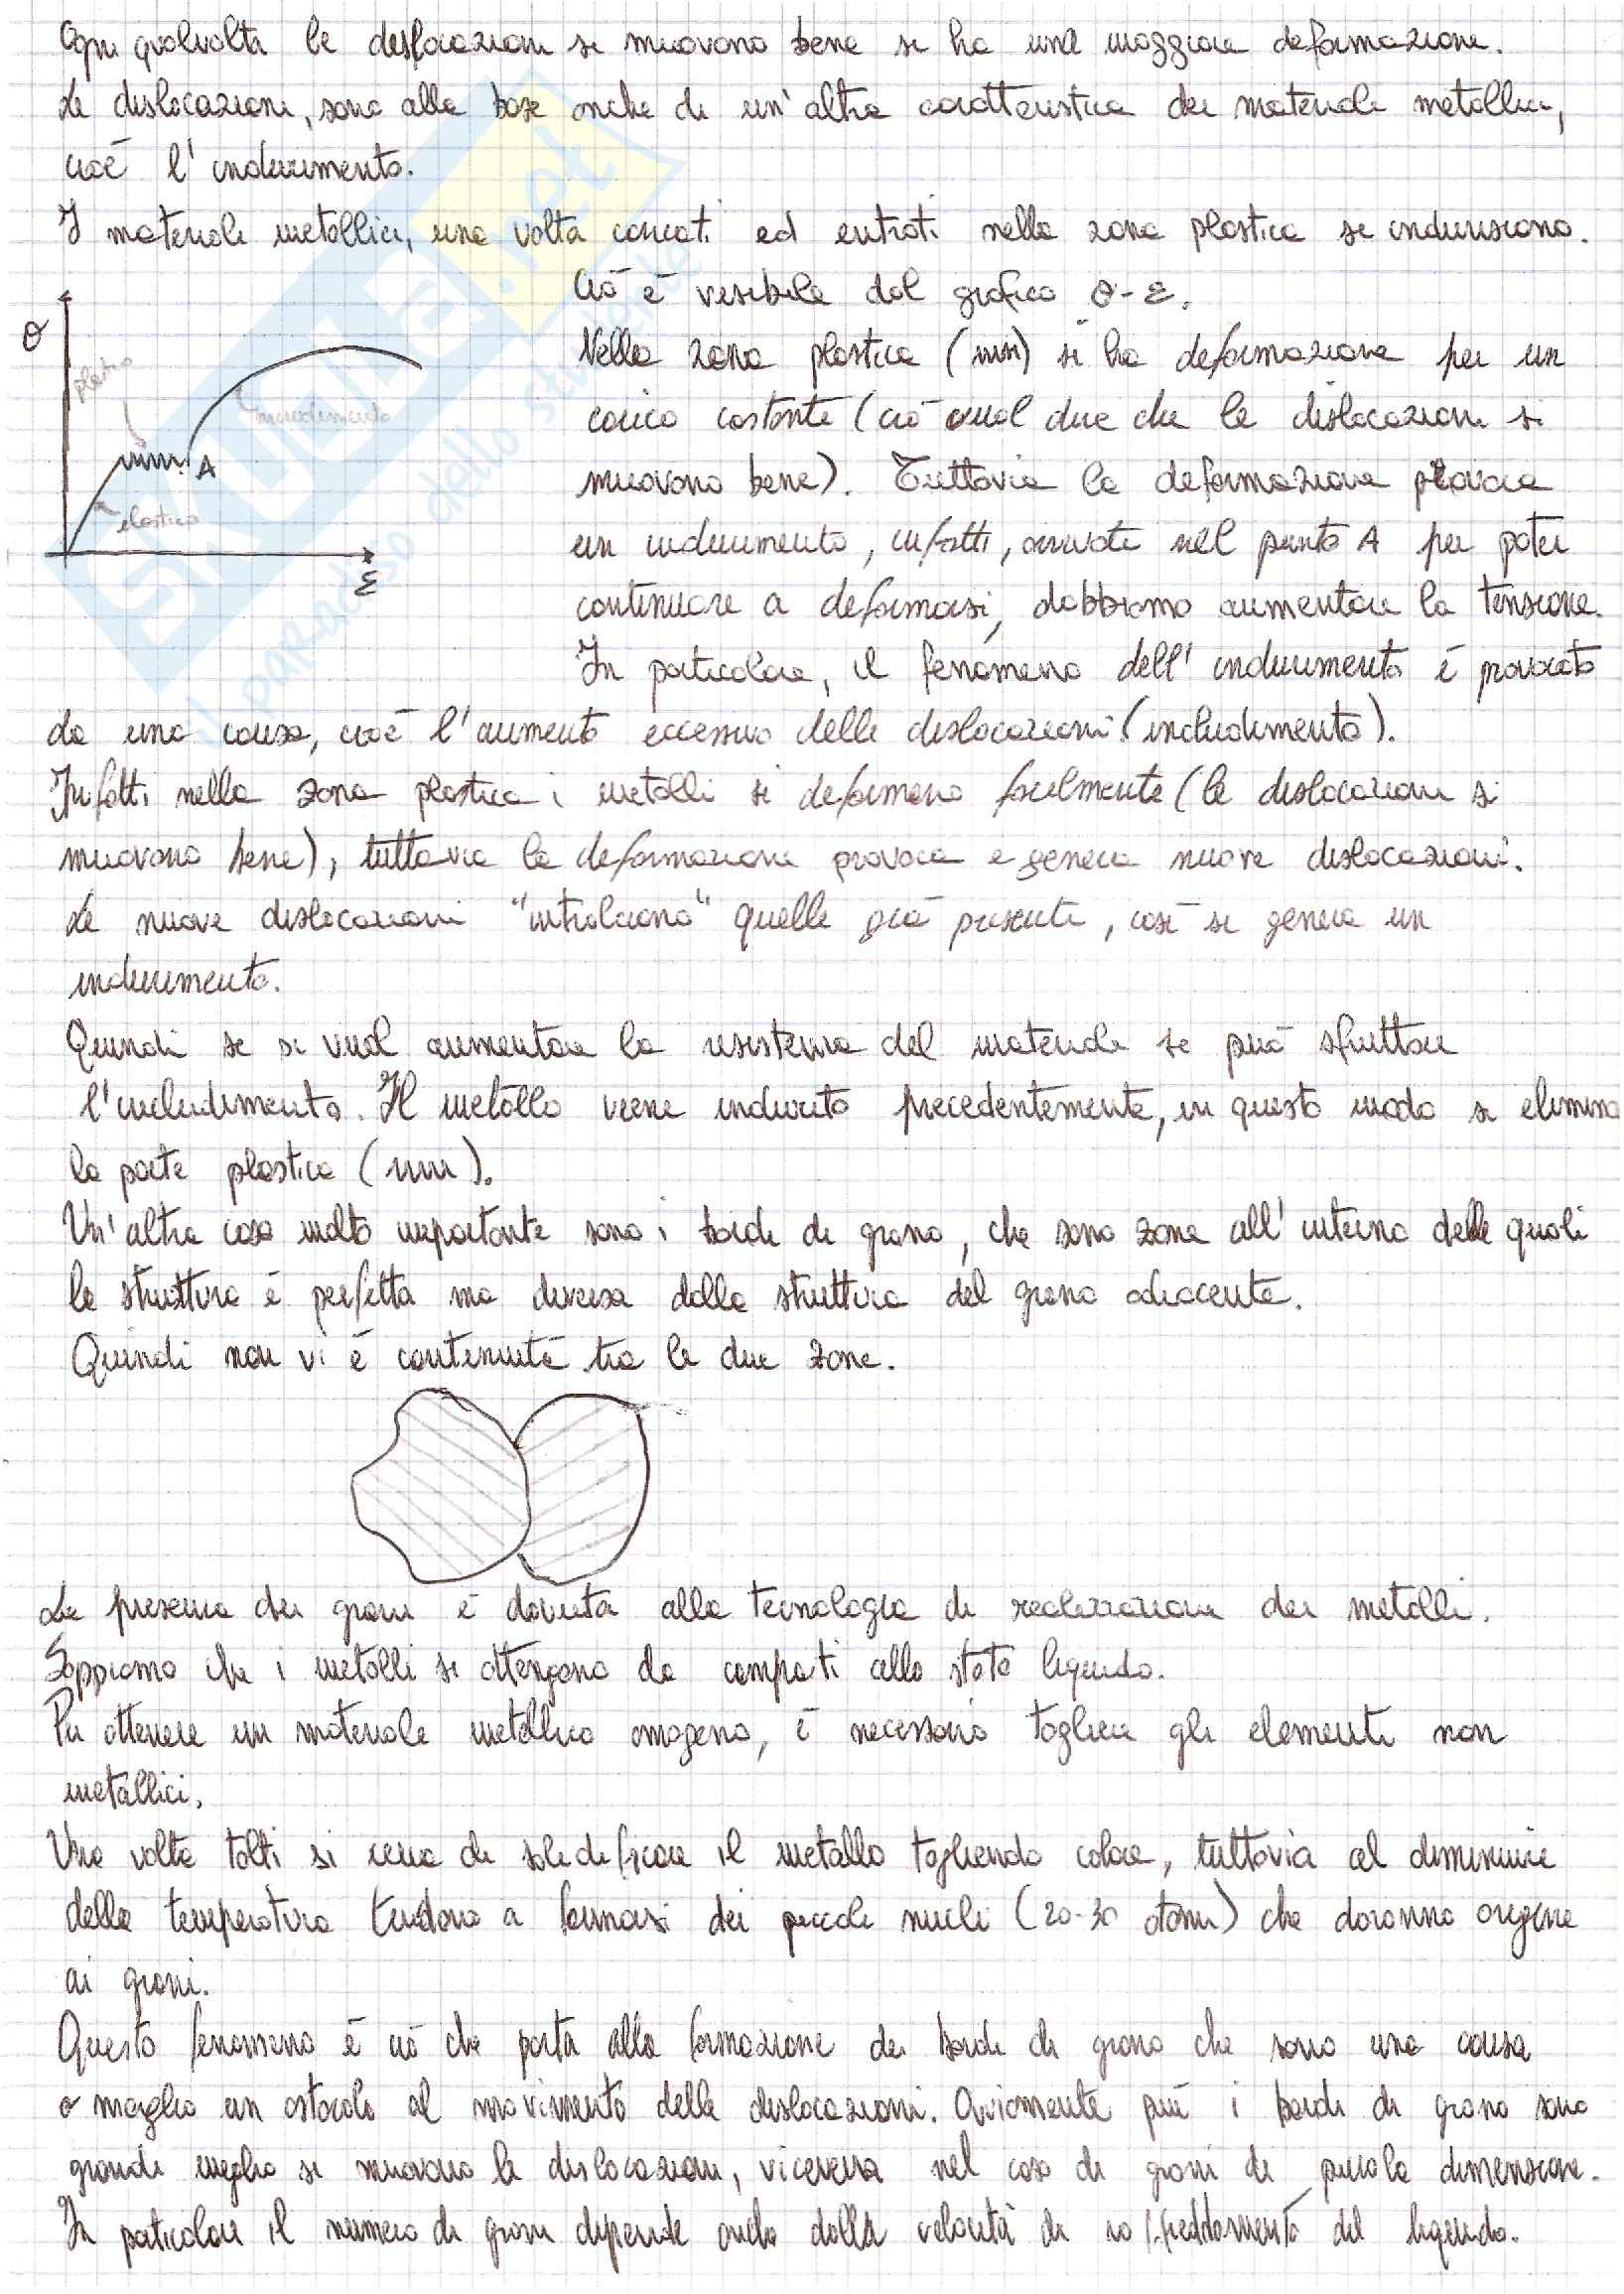 Ogni qualvolta le dislocazioni si muovono bene si ha una maggiore deformazione.
Le dislocazioni, sono alla base anche di un'altra caratteristica dei materiali metallici,
cioè l'indurimento.
I materiali metallici, una volta caricati ed entrati nella zona plastica si induriscono.
Ciò è visibile dal grafico σ-ε.
Nella zona plastica (ʍʍ) si ha deformazione per un
carico costante (ciò vuol dire che le dislocazioni si
muovono bene). Tuttavia la deformazione provoca
un indurimento, infatti, arrivati nel punto A per poter
continuare a deformarsi, dobbiamo aumentare la tensione.
In particolare, il fenomeno dell'indurimento è provocato
da una causa, cioè l'aumento eccessivo delle dislocazioni (incrudimento).
Infatti nella zona plastica i metalli si deformano facilmente (le dislocazioni si
muovono bene), tuttavia la deformazione provoca e genera nuove dislocazioni.
Le nuove dislocazioni "intralciano" quelle già presenti, così si genera un
indurimento.
Quindi se si vuol aumentare la resistenza del materiale si può sfruttare
l'incrudimento. Il metallo viene indurito precedentemente, in questo modo si elimina
la parte plastica (ʍʍ).
Un'altra cosa molto importante sono i bordi di grano, che sono zone all'interno delle quali
la struttura è perfetta ma diversa dalla struttura del grano adiacente.
Quindi non vi è continuità tra le due zone.
La presenza dei grani è dovuta alla tecnologia di realizzazione dei metalli.
Sappiamo che i metalli si ottengono da composti allo stato liquido.
Per ottenere un materiale metallico omogeno, è necessario togliere gli elementi non
metallici.
Una volta tolti si cerca di solidificare il metallo togliendo calore, tuttavia al diminuire
della temperatura tendono a formarsi dei piccoli nuclei (20-30 atomi) che daranno origine
ai grani.
Questo fenomeno è ciò che porta alla formazione dei bordi di grano che sono una causa
o meglio un ostacolo al movimento delle dislocazioni. Ovviamente più i bordi di grano sono
grandi meglio si muovono le dislocazioni, viceversa nel caso di grani di piccola dimensione.
In particolare il numero di grani dipende anche dalla velocità di raffreddamento del liquido.
σ
plastico
incrudimento
A
elastico
ε
SKUOLA.net
il paradiso dello studente